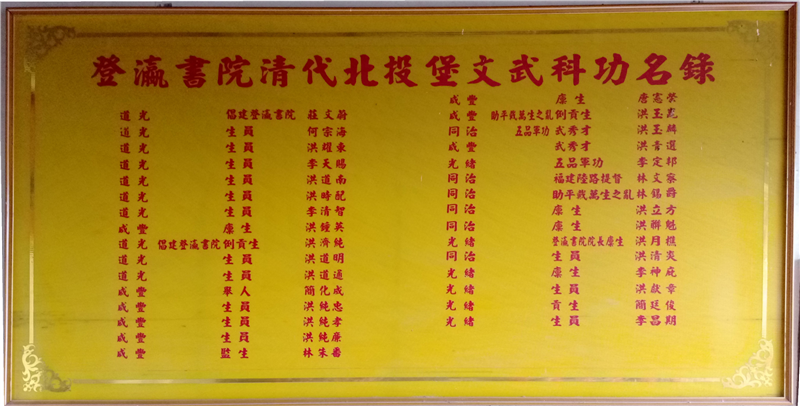 登瀛書院清代北投堡文武科功名錄
道光 倡建登瀛書院 莊文蔚
道光 生員 何宗海
道光 生員 洪耀東
道光 生員 李天賜
道光 生員 洪道南
道光 生員 洪時配
道光 生員 李清智
咸豐 廩生 洪鍾英
道光 倡建登瀛書院例貢生 洪濟純
道光 生員 洪道明
道光 生員 洪道通
咸豐 舉人 簡化成
咸豐 生員 洪純忠
咸豐 生員 洪純孝
咸豐 生員 洪純廉
咸豐 監生 林朱番
咸豐 廩生 唐憲榮
咸豐 助平戴萬生之亂例貢生 洪玉崑
同治 五品軍功武秀才 洪玉麟
咸豐 武秀才 洪青選
光緒 五品軍功 李定邦
同治 福建陸路提督 林文察
同治 助平戴萬生之亂 林錫爵
同治 廩生 洪立方
同治 廩生 洪聯魁
光緒 登瀛書院院長廩生 洪月樵
同治 生員 洪清炎
光緒 廩生 李神庇
光緒 生員 洪獻章
光緒 貢生 簡廷俊
光緒 生員 李昌期